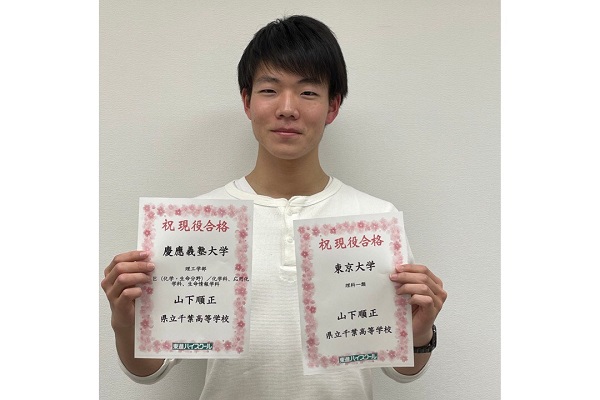 祝 現役合格
慶應義塾大学
理工学部
E（化学・生命分野）／化学科、応用化
学科、生命情報学科
山下順正
県立千葉高等学校
東進ハイスクール
祝 現役合格
東京大学
理科一類
山下順正
県立千葉高等学校
東進ハイスクール